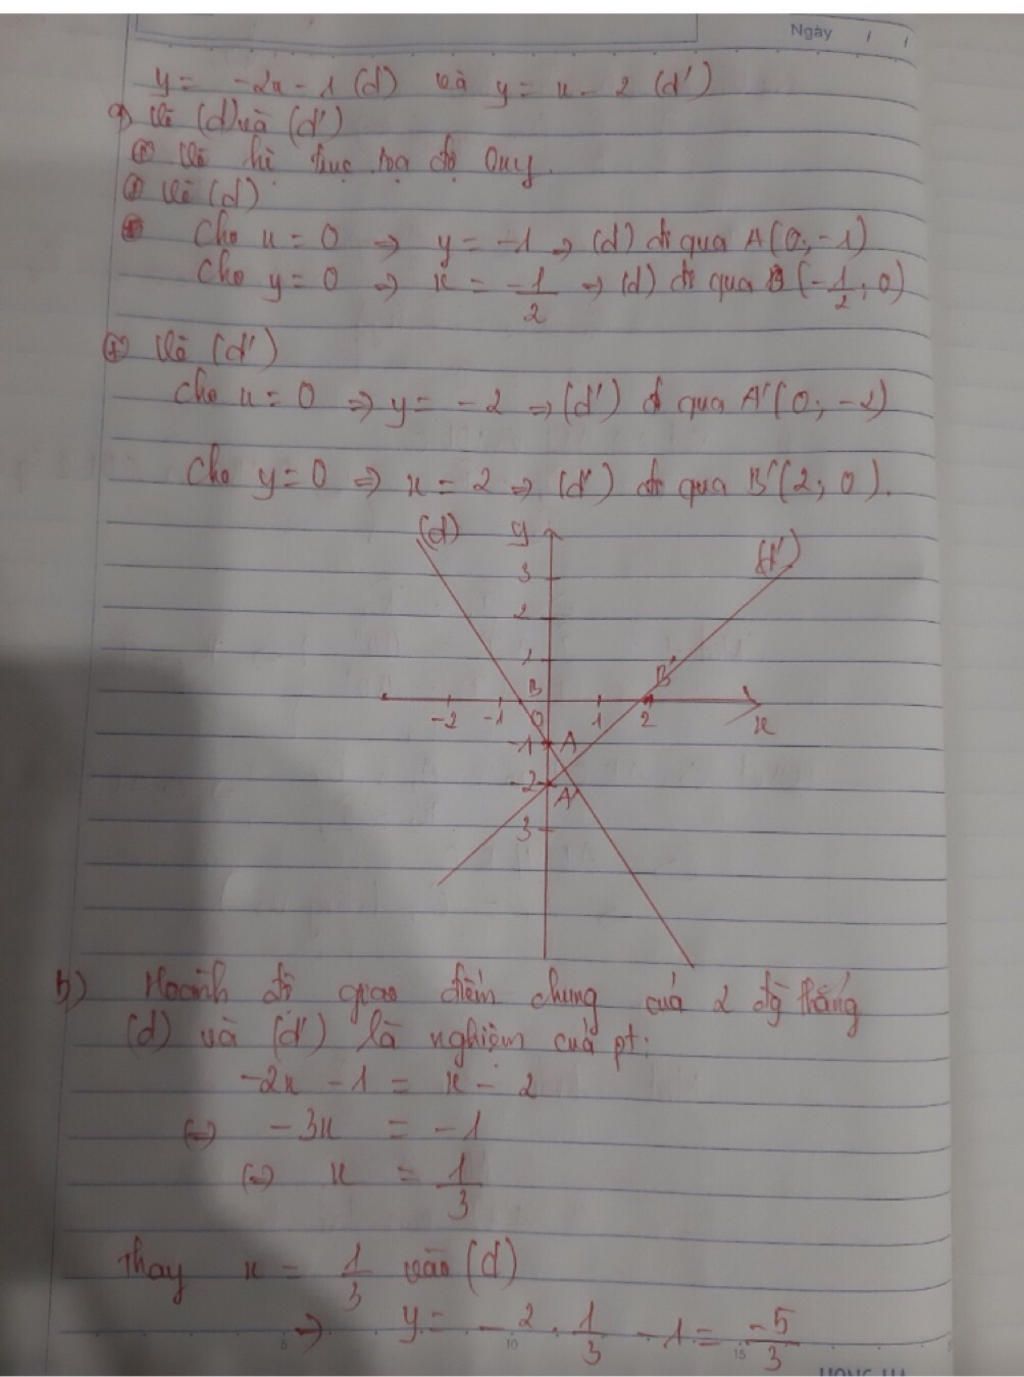 Ngày / /
y = -2x - 1 (d) và y = x - 2 (d')
a) Vẽ (d) và (d')
⊕ Vẽ hệ trục tọa độ Oxy.
⊕ Vẽ (d)
Cho x = 0 ⇒ y = -1 ⇒ (d) đi qua A(0; -1)
Cho y = 0 ⇒ x = -1/2 ⇒ (d) đi qua B(-1/2; 0)
⊕ Vẽ (d')
Cho x = 0 ⇒ y = -2 ⇒ (d') đi qua A'(0; -2)
Cho y = 0 ⇒ x = 2 ⇒ (d') đi qua B'(2; 0).
(d) y (d')
3
2
1
B B'
-2 -1 O 1 2 x
-1 A
-2 A'
3
b) Hoành độ giao điểm chung của 2 đg thẳng
(d) và (d') là nghiệm của pt:
-2x - 1 = x - 2
⇔ -3x = -1
⇔ x = 1/3
Thay x = 1/3 vào (d)
⇒ y = -2 . 1/3 - 1 = -5/3
5 10 15